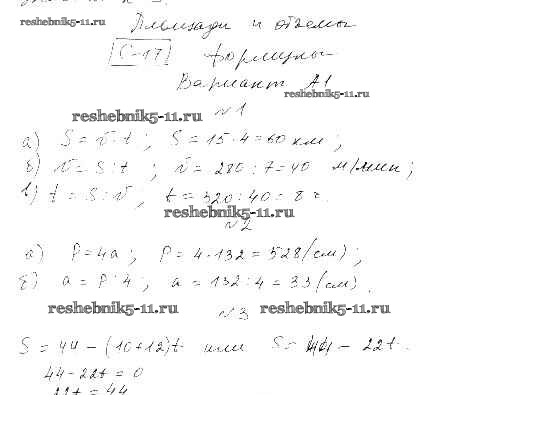 reshebnik5-11.ru
Площади и объемы
C-17 Формулы
Вариант А1
reshebnik5-11.ru
reshebnik5-11.ru
№1
а) S = v · t ; S = 15 · 4 = 60 км ;
б) v = S : t ; v = 280 : 7 = 40 м/мин ;
в) t = S : v ; t = 320 : 40 = 8 г.
reshebnik5-11.ru
№2
а) P = 4a ; P = 4 · 132 = 528 (см) ;
б) a = P : 4 ; a = 132 : 4 = 33 (см) .
reshebnik5-11.ru reshebnik5-11.ru
№3
S = 44 - (10+12)t или S = 44 - 22t .
44 - 22t = 0
22t = 44